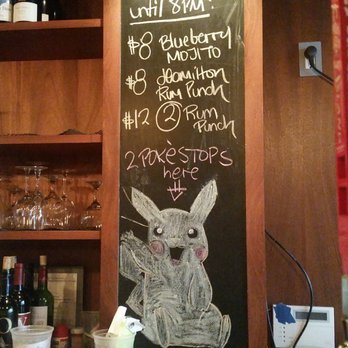 until 8PM!
$8 Blueberry
MOJITO
$8 Hamilton
Rum Punch
$12 2 Rum
Punch
2 POKèSTOPS
here